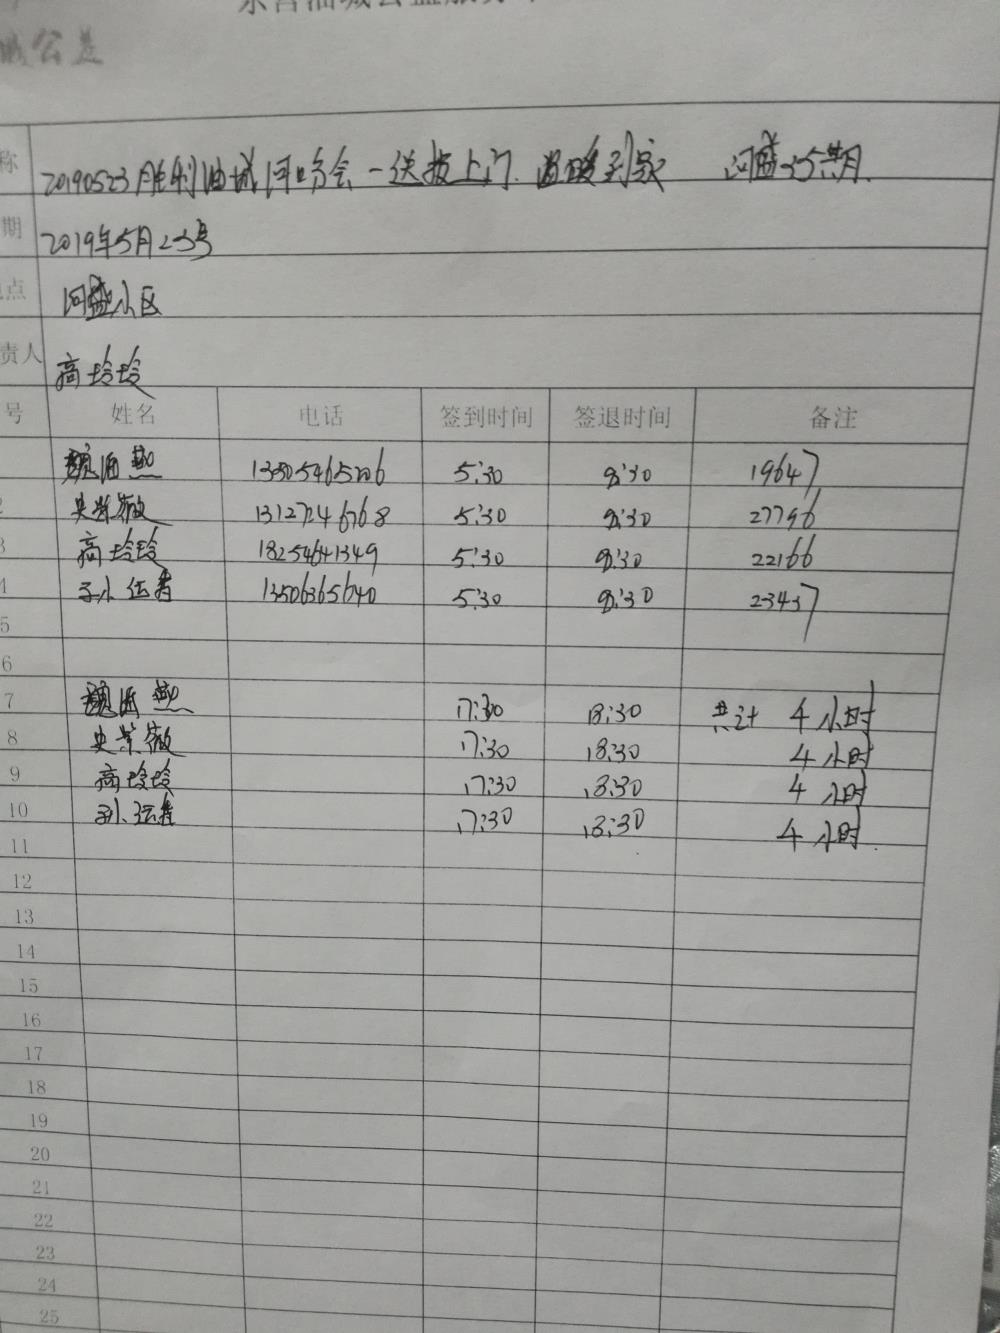 城公益
称 20190523胜利油城河口分会-送报上门.温暖到家 河盛35期.
期 2019年5月23号
点 河盛小区
责人 高玲玲
号 姓名 电话 签到时间 签退时间 备注
13505465206 5:30 8:30 19647
2 史紫薇 13127246768 5:30 8:30 27796
3 高玲玲 18254641349 5:30 8:30 22166
4 13506365640 5:30 8:30 23437
5
6
7 17:30 18:30 共计 4小时
8 史紫薇 17:30 18:30 4小时
9 高玲玲 17:30 18:30 4小时
10 17:30 18:30 4小时.
11
12
13
14
15
16
17
18
19
20
21
22
23
24
25